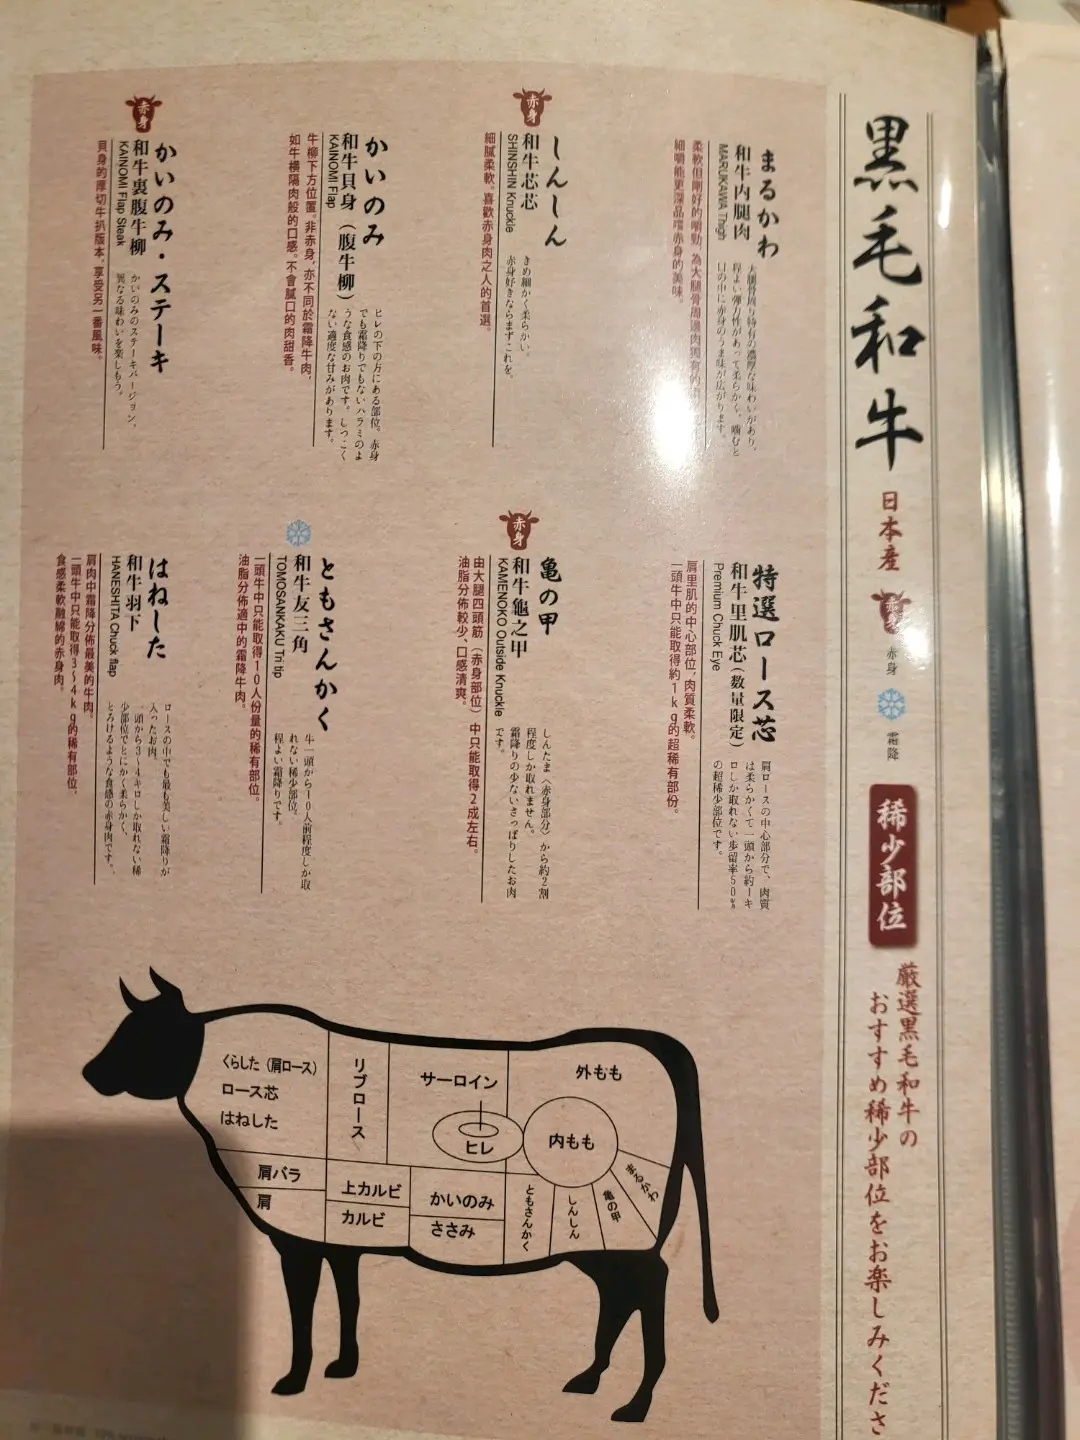 黒毛和牛
日本産
赤身
赤身
霜降
稀少部位
厳選黒毛和牛の
おすすめ稀少部位をお楽しみくださ
まるかわ
和牛内腿肉
MARUKAWA Thigh
大腿骨周り特有の濃厚な味わいがあり、
程よい弾力性があって柔らかく、噛むと
口の中に赤身のうま味が広がります。
柔軟但剛好的嚼勁、為大腿骨周邊肉獨有的
細嚼能更深品嚐赤身的美味。
赤身
しんしん
和牛芯芯
SHINSHIN Knuckle
きめ細かく柔らかい。
赤身好きならまずこれを。
細膩柔軟。喜歡赤身肉之人的首選。
かいのみ
和牛貝身（腹牛柳）
KAINOMI Flap
ヒレの下の方にある部位。赤身
でも霜降りでもないハラミのよ
うな食感のお肉です。しつこく
ない適度な甘みがあります。
牛柳下方位置。非赤身，亦不同於霜降牛肉，
如牛橫隔肉般的口感。不會膩口的肉甜香。
赤身
かいのみ・ステーキ
和牛裏腹牛柳
KAINOMI Flap Steak
かいのみのステーキバージョン、
異なる味わいを楽しもう。
貝身的厚切牛扒版本，享受另一番風味。
特選ロース芯
和牛里肌芯(数量限定)
Premium Chuck Eye
肩ロースの中心部分で、肉質
は柔らかくて一頭から約一キ
ロしか取れない歩留率50%
の超稀少部位です。
肩里肌的中心部位，肉質柔軟。
一頭牛中只能取得約1kg的超稀有部份。
赤身
亀の甲
和牛龜之甲
KAMENOKO Outside Knuckle
しんたま〈赤身部分〉から約2割
程度しか取れません。
霜降りの少ないさっぱりしたお肉
です。
由大腿四頭筋（赤身部位）中只能取得2成左右。
油脂分佈較少、口感清爽。
ともさんかく
和牛友三角
TOMOSANKAKU Tri tip
牛一頭から10人前程度しか取
れない稀少部位。
程よい霜降りです。
一頭牛中只能取得10人份量的稀有部位。
油脂分佈適中的霜降牛肉。
はねした
和牛羽下
HANESHITA Chuck flap
ロースの中でも最も美しい霜降りが
入ったお肉。
一頭から3〜4キロしか取れない稀
少部位でとにかく柔らかく、
とろけるような食感の赤身肉です。
肩肉中霜降分佈最美的牛肉。
一頭牛中只能取得3〜4kg的稀有部位，
食感柔軟融綿的赤身肉。
くらした（肩ロース）
ロース芯
はねした
リブロース
サーロイン
ヒレ
外もも
内もも
肩バラ
肩
上カルビ
カルビ
かいのみ
ささみ
ともさんかく
しんしん
亀の甲
まるかわ